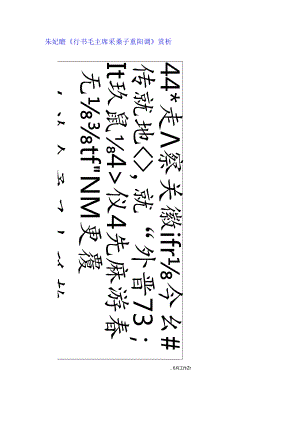 朱妃瞻《行书毛主席采桑子重阳调》赏析
44*走Λ察关徽ifr⅛今幺#
传就地<>，就“外晋73；
It玖鼠⅛4>仪4先麻游春
无⅛⅜tf"NM更覆